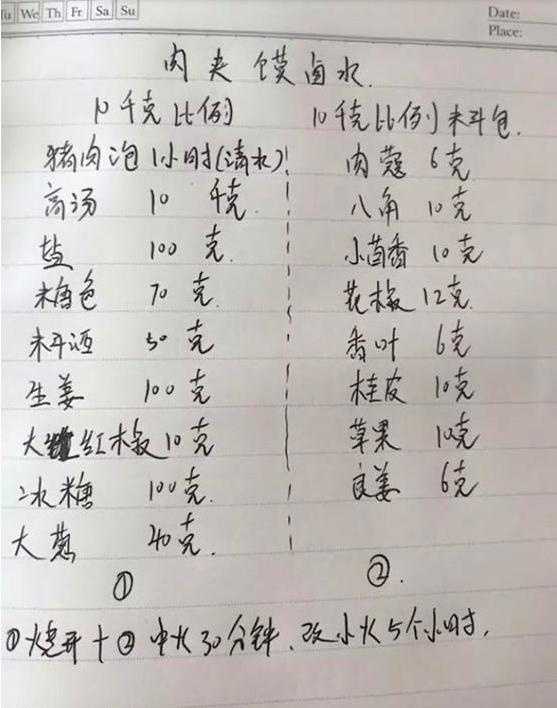 Tu We Th Fr Sa Su
Date:
Place:
肉夹馍卤水.
10千克比例
猪肉泡1小时(清水)
高汤 10 千克.
盐 100 克.
糖色 70 克.
料酒 50 克
生姜 100 克
大红椒 10 克
冰糖 100 克.
大葱 40 克.
①
10千克比例料包.
肉蔻 6克
八角 10克
小茴香 10克
花椒 12克
香叶 6克
桂皮 10克
草果 10克
良姜 6克
②.
①烧开+②中火30分钟、改小火5个小时.